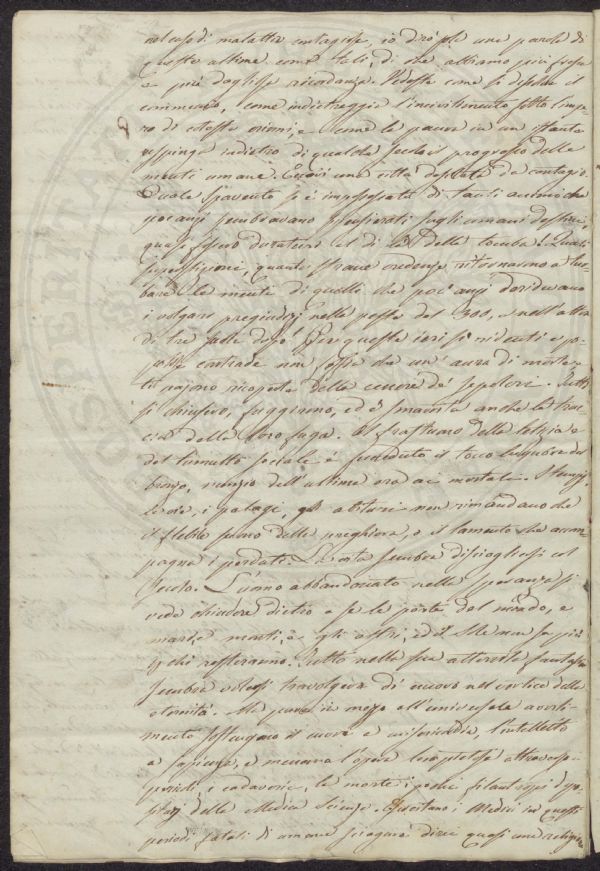 nel caso di malattie contagiose, io dirò sol una parola di
queste ultime come tali, di che abbiamo più fresca
e più dogliosa ricordanza. Vedeste come si dissolve il
commercio, come indietreggia l'incivilimento sotto l'impe-
ro di coteste e come la paura in un istante
respinge indietro di qualche secolo i progressi delle
menti umane. Eccovi una città desolata da contagio.
Quale spavento si è impossessato di tanti animi che
poc'anzi sembravano spensierati sugli umani destini,
quasi fossero duraturi al di là della tomba! Quali
superstizioni, quante strane credenze ritornarono a tur-
bare le menti di quelli che poc'anzi deridevano
i volgari pregiudizi nella peste del 300, e nell'altra
di tre secoli dopo! Per queste ieri sì ridenti e po-
polose contrade non soffia che un'aura di morte e
ti pajono ricoperte della cenere de' sepolcri. Tutti
si chiusero, fuggirono, ed è smarrita anche la trac-
cia della loro fuga. Al frastuono della letizia e
del tumulto sociale è succeduto il tocco lugubre del
bronzo, nunzio dell'ultima ora ai mortali. I tempj
le vie, i palagi, gli abituri non rimandano che
il flebile suono delle preghiere, o il lamento che accom-
pagna i perduti. La vita sembra disciogliersi col
secolo. L'uomo abbandonato nelle speranze si
vede chiudere dietro a se le porte del mondo, e
mancò gli astri, ed il Sole non sa più
chi resteranno. Tutto nella sua atterrita fantasia
sembra volersi travolgere di nuovo nel vortice della
eternità. Ma pure in mezzo all'universale avvili-
mento sostengono il cuore e l'intelletto
a sapienza, e menano l'opera loro pietosa attraverso
pericoli, i cadaveri, la morte i pochi filantropi depo-
sitarj della Medica Scienza. Esercitano i Medici in questi
periodi fatali di umane sciagure direi quasi una religione